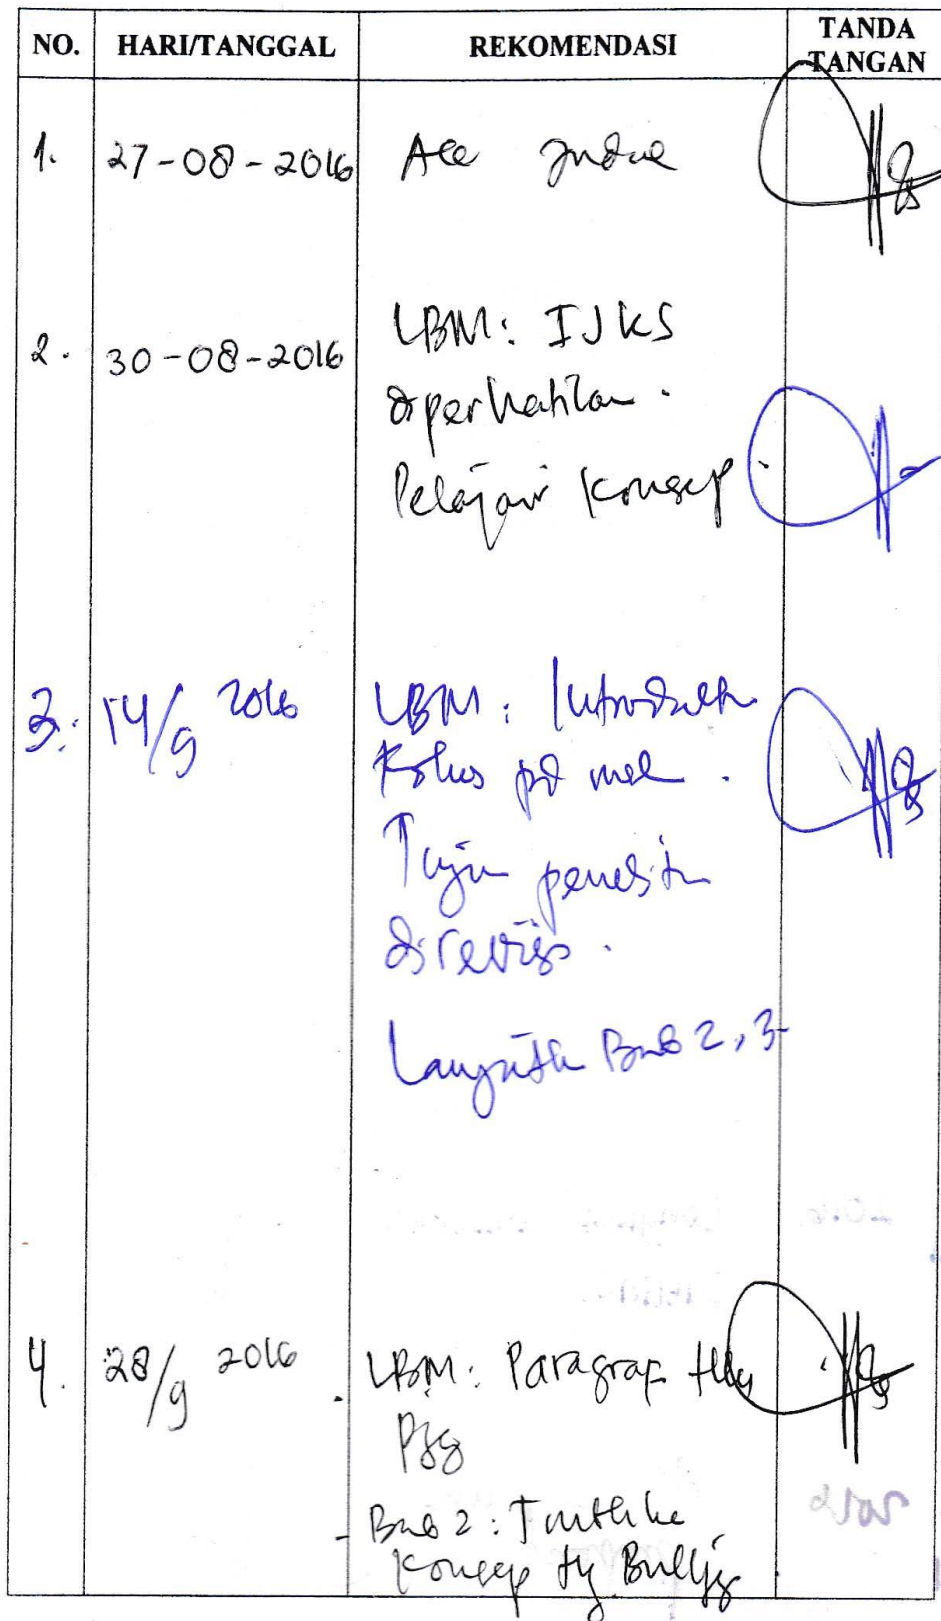 NO. HARI/TANGGAL REKOMENDASI TANDA TANGAN
1. 27-08-2016 Acc Judul
2. 30-08-2016 LBM: IJKS
diperhatikan.
Pelajari Konsep.
3. 14/9 2016 LBM: Introduksi
Fokus pd
Tujuan penelitian
direvisi.
Lanjutkan Bab 2, 3
4. 28/9 2016 - LBM: Paragraf
Pjg
- Bab 2:
Konsep ttg Bullying